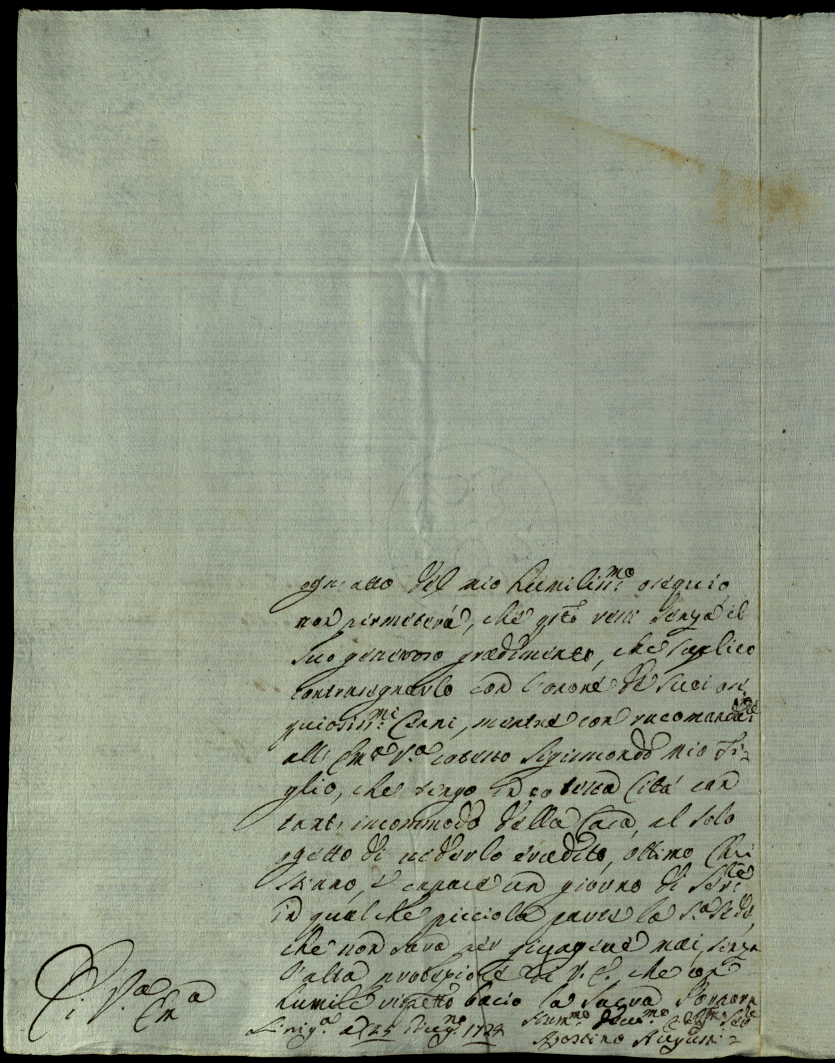 ogni atto del mio humiliss.mo ossequio,
non permeterà, che q.to resti senza il
suo generoso gradimento, che suplico
contrasegnarlo con l'onore de suoi os
quiosiss.mi Cenni, mentre con racomandar
all' Em.a V.a Sigismondo mio fi=
glio, che tengo in cotesta Cità con
tanto incommodo della Casa, al solo
ogetto di vederlo erudito, ottimo Chri
stiano, e capace un giorno di ser
in qualche picciola parte la S.a Sede,
che non sarà per mai, senza
l'alta protezione di V. E. che con
humile rispetto bacio la Sacra Porpora
Di V.a Em.a
1724
Hum.mo
Agostino